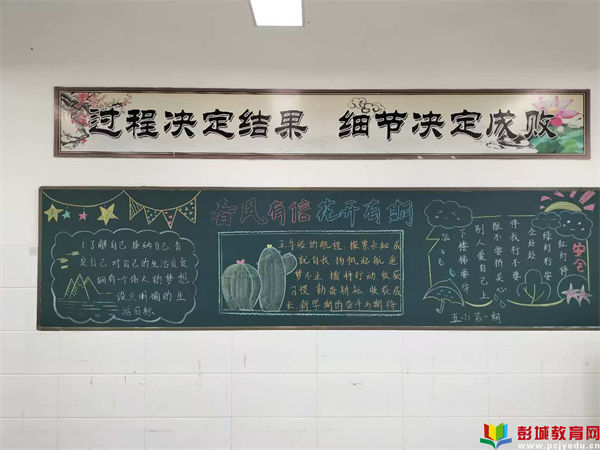 过程决定结果 细节决定成败
春风有信花开有期
1了解自己 接纳自己 肯
定自己 对自己的生活负责
拥有个伟大的梦想
设立明确的生
活目标
五年级的航程 探索求知 成
就自我 扬帆起航 追
梦不止 播种行动 收获
习惯 勤奋耕耘 收获成
长 新学期的奋斗与期待
安全
红灯停
绿灯行 安
全处处
停我行 不要
推不要挤 关心
别人爱自己 上
下楼梯事件
五(1) 第一期
彭城教育网
www.pcjyedu.cn